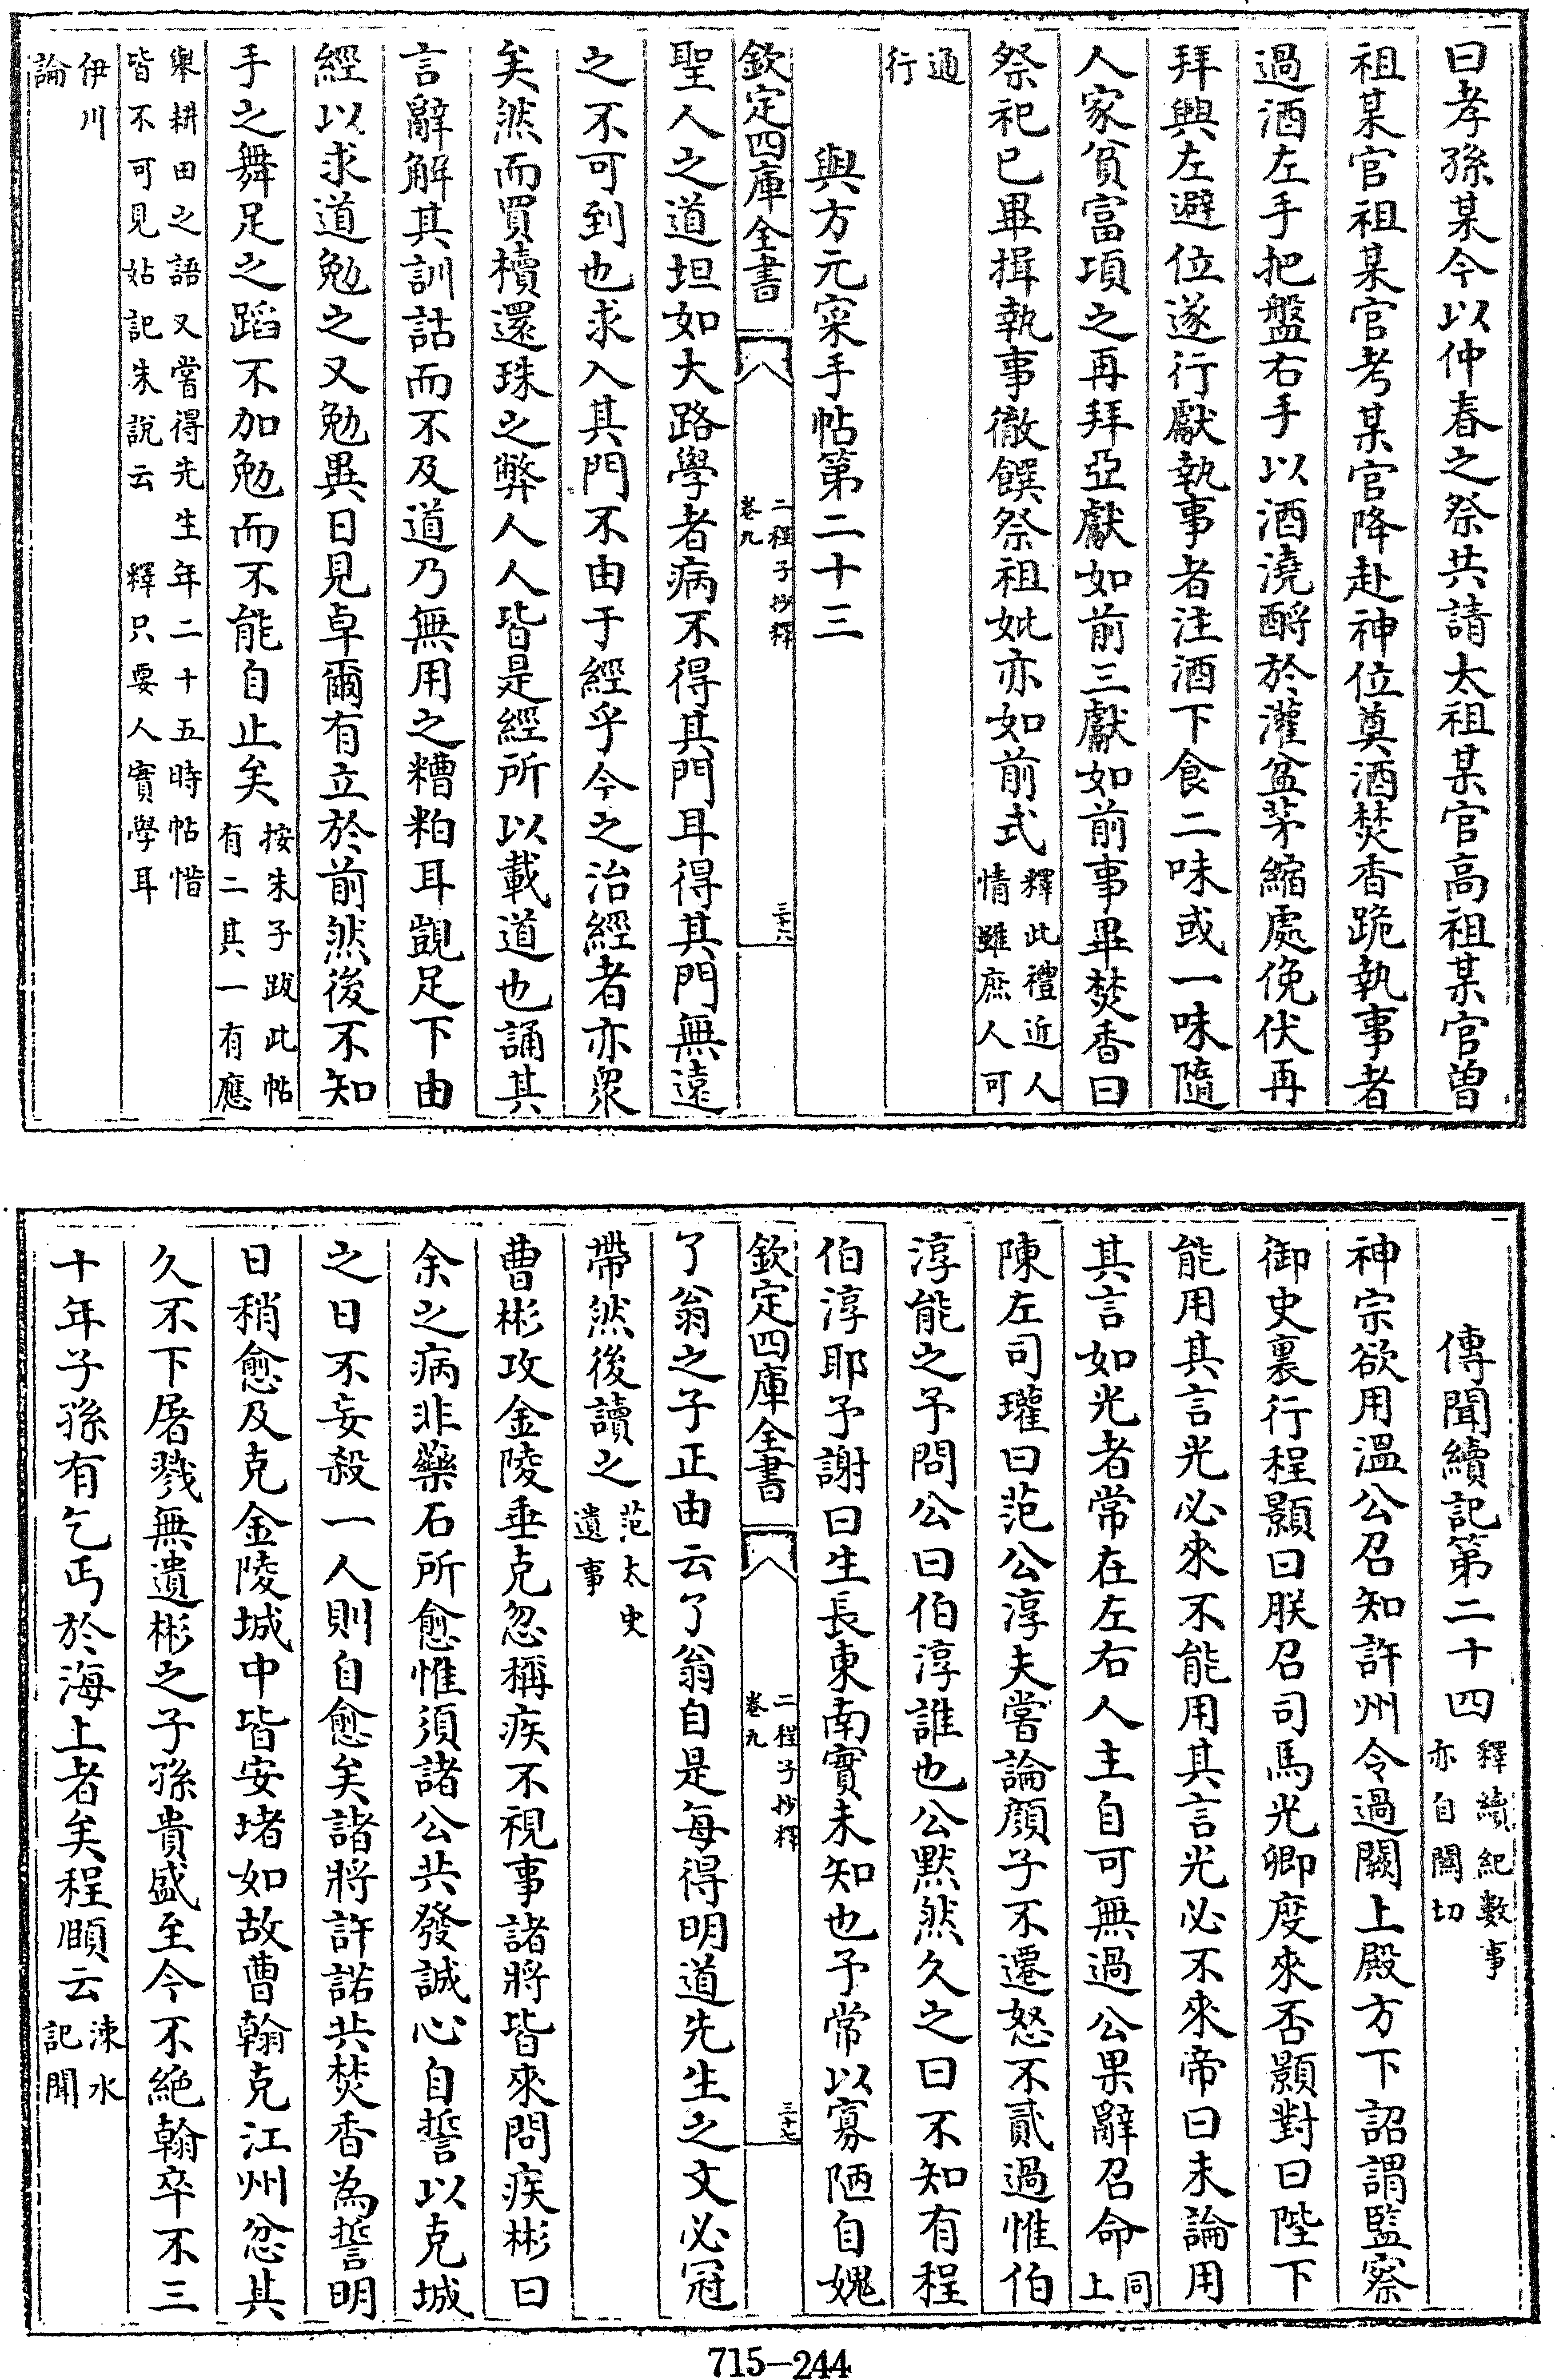 曰孝孫某今以仲春之祭共請太祖某官高祖某官曽
祖某官祖某官考某官降赴神位奠酒焚香跪執事者
過酒左手把盤右手以酒澆酹於灌盆茅縮處俛伏再
拜興左避位遂行獻執事者注酒下食二味或一味隨
人家貧富項之再拜亞獻如前三獻如前事畢焚香曰
祭祀已畢揖執事徹饌祭祖妣亦如前式釋此禮近人
情雖庶人可
通
行
與方元寀手帖第二十三
欽定四庫全書
二程子抄釋
卷九
三十六
聖人之道坦如大路學者病不得其門耳得其門無遠
之不可到也求入其門不由于經乎今之治經者亦衆
矣然而買櫝還珠之弊人人皆是經所以載道也誦其
言辭解其訓詁而不及道乃無用之糟粕耳覬足下由
經以求道勉之又勉異日見卓爾有立於前然後不知
手之舞足之蹈不加勉而不能自止矣按朱子跋此帖
有二其一有應
舉耕田之語又嘗得先生年二十五時帖惜
皆不可見姑記朱說云 釋只要人實學耳
伊川
論
傳聞續記第二十四釋續紀數事
亦自闗切
神宗欲用溫公召知許州令過闕上殿方下詔謂監察
御史裏行程顥曰朕召司馬光卿度來否顥對曰陛下
能用其言光必來不能用其言光必不來帝曰未論用
其言如光者常在左右人主自可無過公果辭召命同
上
陳左司瓘曰范公淳夫嘗論顔子不遷怒不貳過惟伯
淳能之予問公曰伯淳誰也公默然久之曰不知有程
伯淳耶予謝曰生長東南實未知也予常以寡陋自媿
欽定四庫全書
二程子抄釋
卷九
三十七
了翁之子正由云了翁自是每得明道先生之文必冠
帶然後讀之范太史
遺事
曹彬攻金陵垂克忽稱疾不視事諸將皆來問疾彬曰
余之病非藥石所愈惟須諸公共發誠心自誓以克城
之日不妄殺一人則自愈矣諸將許諾共焚香為誓明
日稍愈及克金陵城中皆安堵如故曹翰克江州忿其
久不下屠戮無遺彬之子孫貴盛至今不絶翰卒不三
十年子孫有乞丐於海上者矣程頤云涑水
記聞
715-244